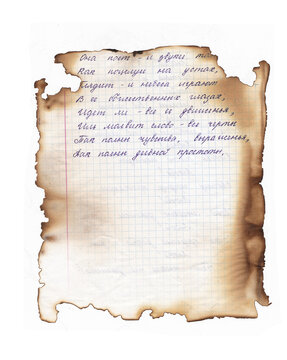 Она поёт - и звуки та
Как поцелуи на устах,
Глядит - и небеса играют
В её божественных глазах,
Идёт ли - все её движенья,
Иль молвит слово - все черты
Так полны чувства, выраженья,
Так полны дивной простоты.